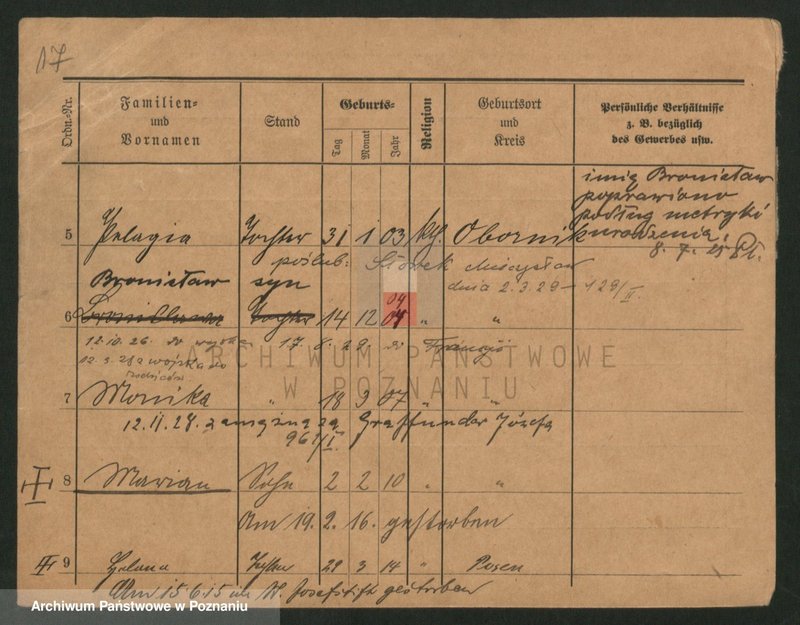 17
Ordn.-Nr. Familien- und Vornamen Stand Geburts- Tag Monat Jahr Religion Geburtsort und Kreis Persönliche Verhältnisse z. B. bezüglich des Gewerbes usw.
imię Bronisław
poprawiono
podług metryki
urodzenia,
8. 7. 25
5 Pelagia Tochter 31 1 03 Kth. Obornik
poślub: Stówek
dnia 2.3.29 – 129/II.
Bronisław syn
04
6 Tochter 14 12 04 " "
12.10.26. do wojska 17. 8. 29. do
12.3.28 z wojska do
rodziców
ARCHIWUM PAŃSTWOWE
W POZNANIU
7 Monika " 18 3 07 " "
12.11.28. zamężna za Graffunder Józefa
961/I.
8 Marian Sohn 2 2 10 " "
Am 19. 2. 16. gestorben
9 Helena Tochter 29 3 14 " Posen
Am 15.6.15 im St. Josefstift gestorben
Archiwum Państwowe w Poznaniu